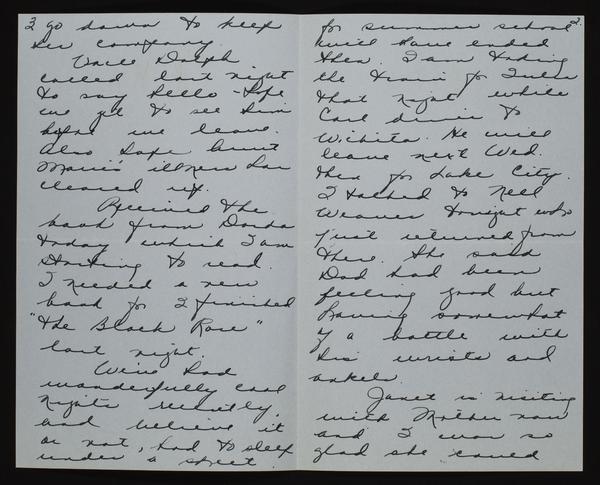 2.
for summer school
will have ended
then. I am taking
the train for Tulsa
that night while
Carl drives to
Wichita. He will
leave next Wed.
then for Lake City.
I talked to Nell
Weaver tonight who
just returned from
there. She said
Dad had been
feeling good but
having somewhat
of a battle with
his wrists and
ankels.
Janet is visiting
with Mother now
and I was so
glad she could
3
go down to keep
her company.
Uncle Dolph
called last night
to say hello - hope
we get to see him
before we leave.
Also hope Aunt
Marie's illness has
cleared up.
Received the
book from
today which I am
starting to read.
I needed a new
book for I finished
"The Black Rose"
last night.
We've had
wonderfully cool
nights recently,
and believe it
or not, had to sleep
under a sheet.